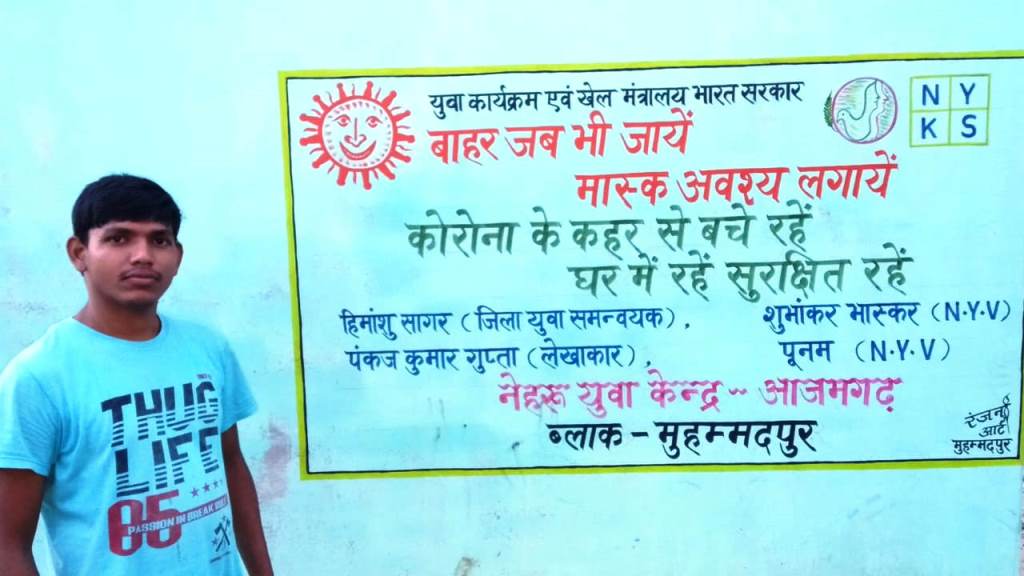 युवा कार्यक्रम एवं खेल मंत्रालय भारत सरकार
N Y
K S
बाहर जब भी जायें
मास्क अवश्य लगायें
कोरोना के कहर से बचे रहें
घर में रहें सुरक्षित रहें
हिमांशु सागर (जिला युवा समन्वयक), शुभांकर भास्कर (N.Y.V)
पंकज कुमार गुप्ता (लेखाकार), पूनम (N.Y.V)
नेहरू युवा केन्द्र -- आजमगढ़
ब्लाक - मुहम्मदपुर
रंजन
आर्ट
मुहम्मदपुर
THUG
LIFE
85
PASSION IN BREAK